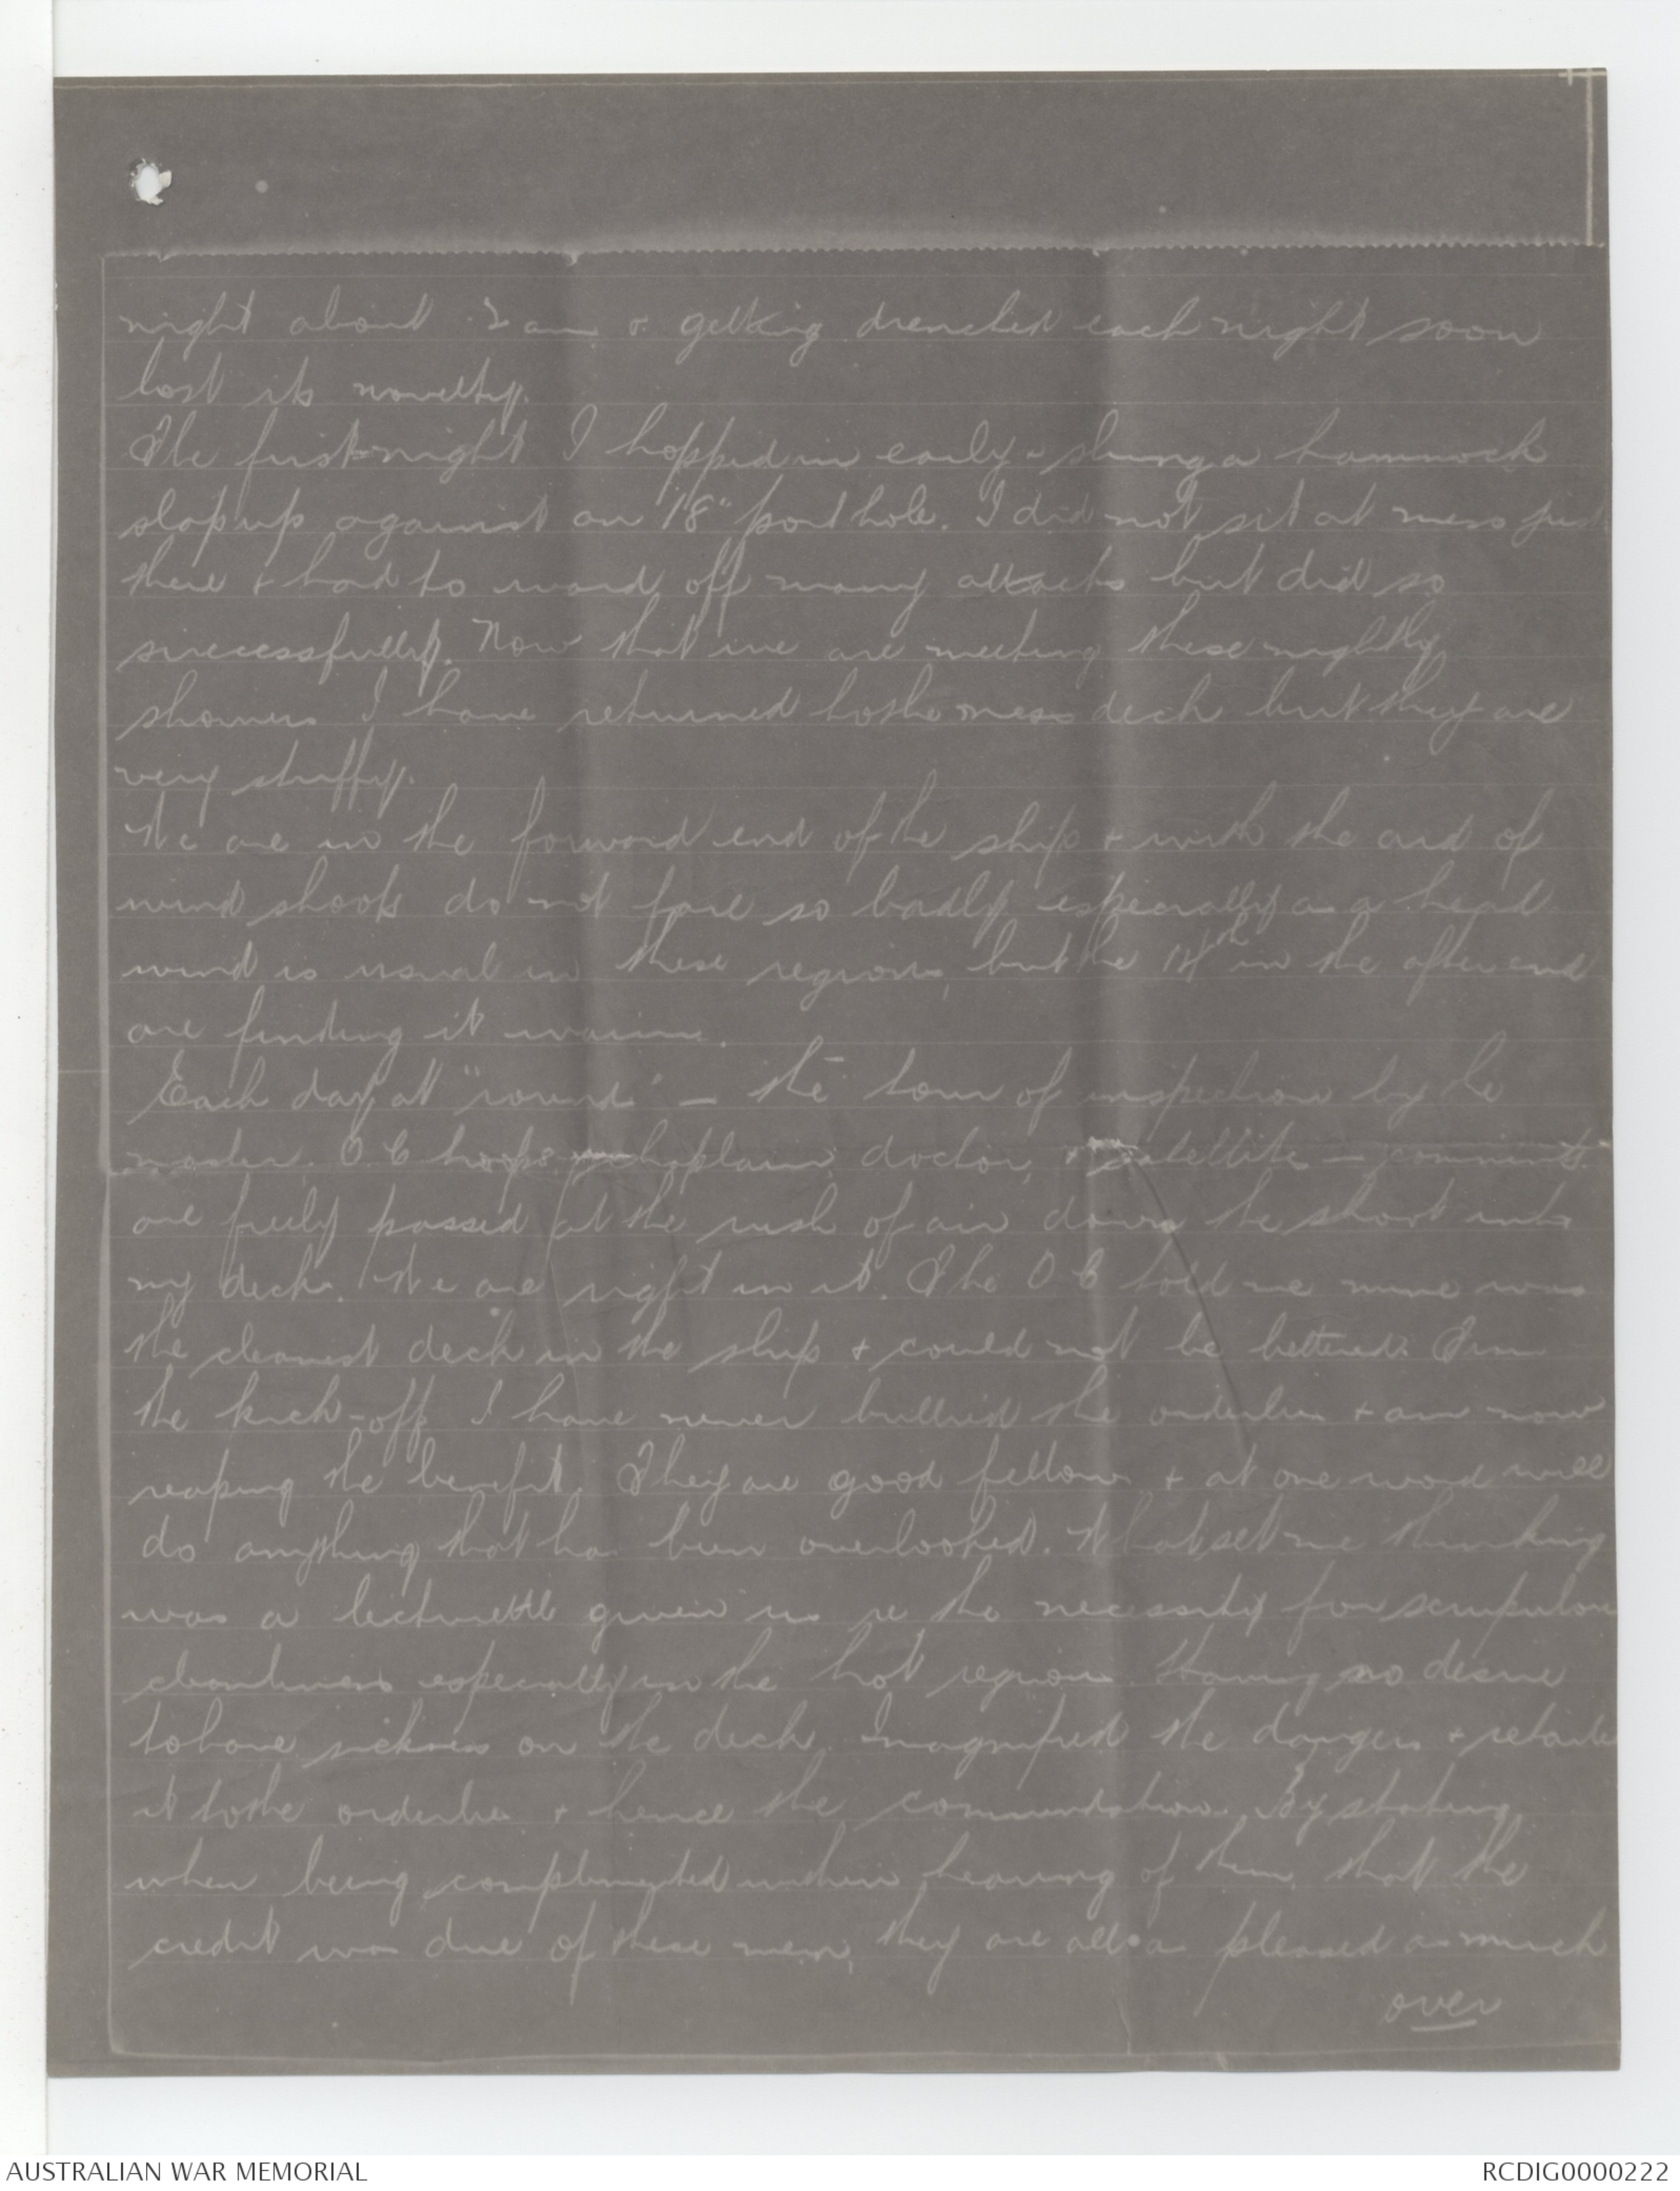 night about 2 am & getting drenched each night soon
lost its novelty.
The first night I hopped in early & slung a hammock
slap up against an 18" port hole. I did not sit at mess just
there & had to ward off many attacks but did so
successfully. Now that we are meeting these nightly
showers I have returned to the mess deck but they are
very stuffy.
We are in the forward end of the ship & with the aid of
wind shoots do not fare so badly especially as a head
wind is usual in these regions, but the 14th in the after end
are finding it warm.
Each day at "rounds" – the tour of inspection by the
master, O C troops, chaplain, doctor, & satellite – comments
are freely passed at the rush of air down the shoot into
my deck. We are right in it. The O C told me mine was
the cleanest deck in the ship & could not be bettered. From
the kick-off I have never bullied the orderlies & am now
reaping the benefit. They are good fellows & at one word will
do anything that has been overlooked. What set me thinking
was a lecturette given us re the necessity for scrupulous
cleanliness especially in the hot regions. Having no desire
to have sickness on the deck I magnified the dangers & retailed
it to the orderlies & hence the commendation. By stating
when being complimented within hearing of them, that the
credit was due of these men, they are all as pleased as much
over
AUSTRALIAN WAR MEMORIAL
RCDIG0000222